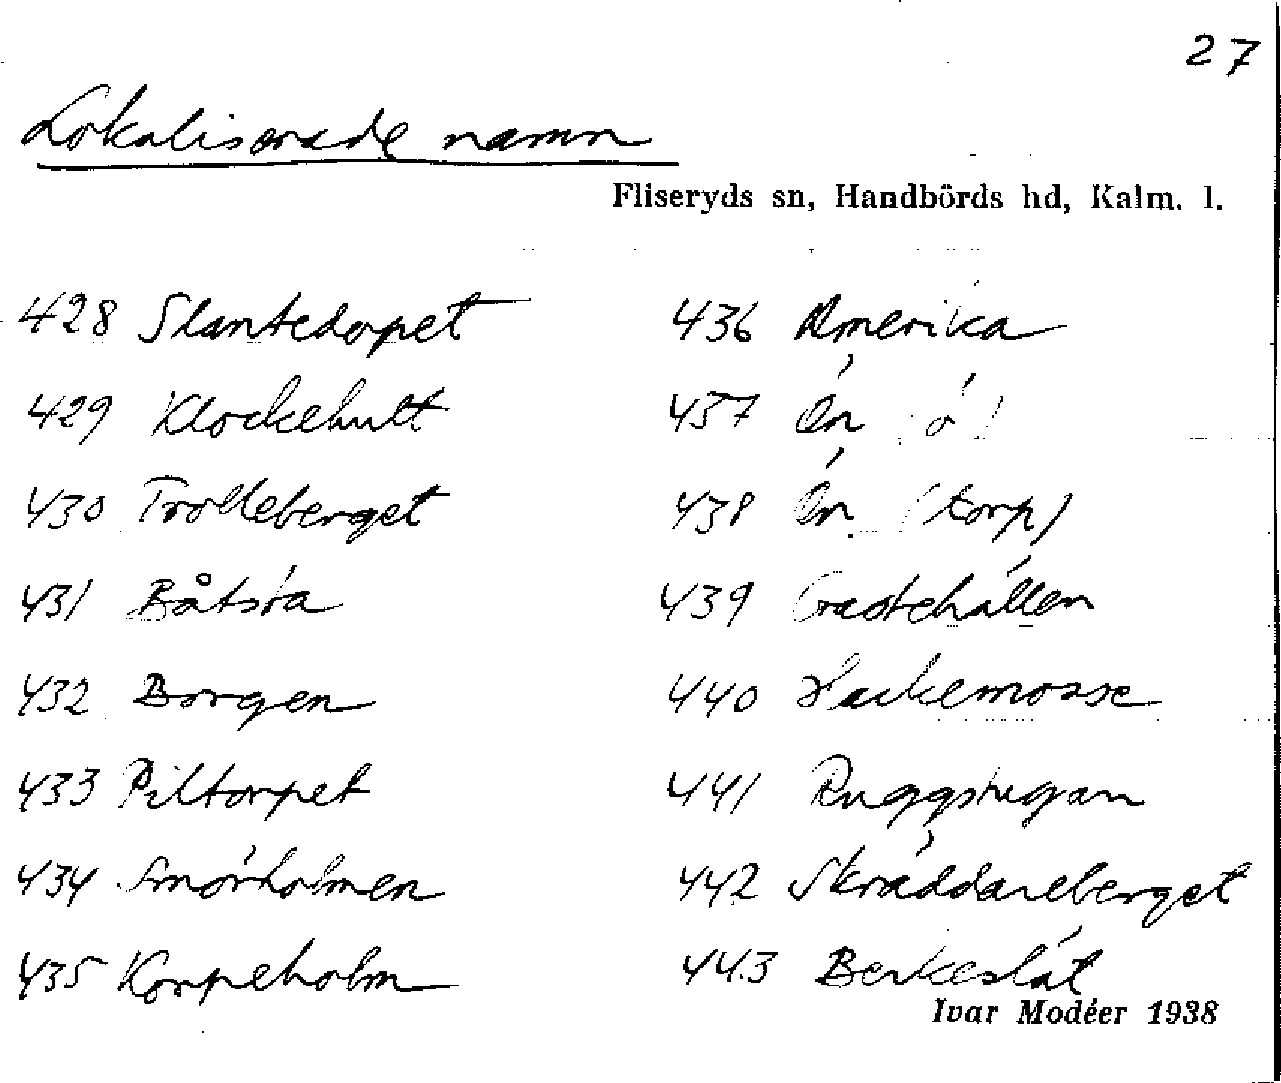 27
Lokaliserade namn
Fliseryds sn, Handbörds hd, Kalm. l.
428 Slantetorpet
429 Klockehult
430 Trolleberget
431 Båtsöa
432 Borgen
433 Piltorpet
434 Smörholmen
435 Korpeholm
436 Amerika
437 Ön ö)
438 Ön (torp)
439 Gastehällen
440 Hackemosse
441 Ruggstugan
442 Skräddareberget
443 Berkeslät
Ivar Modéer 1938